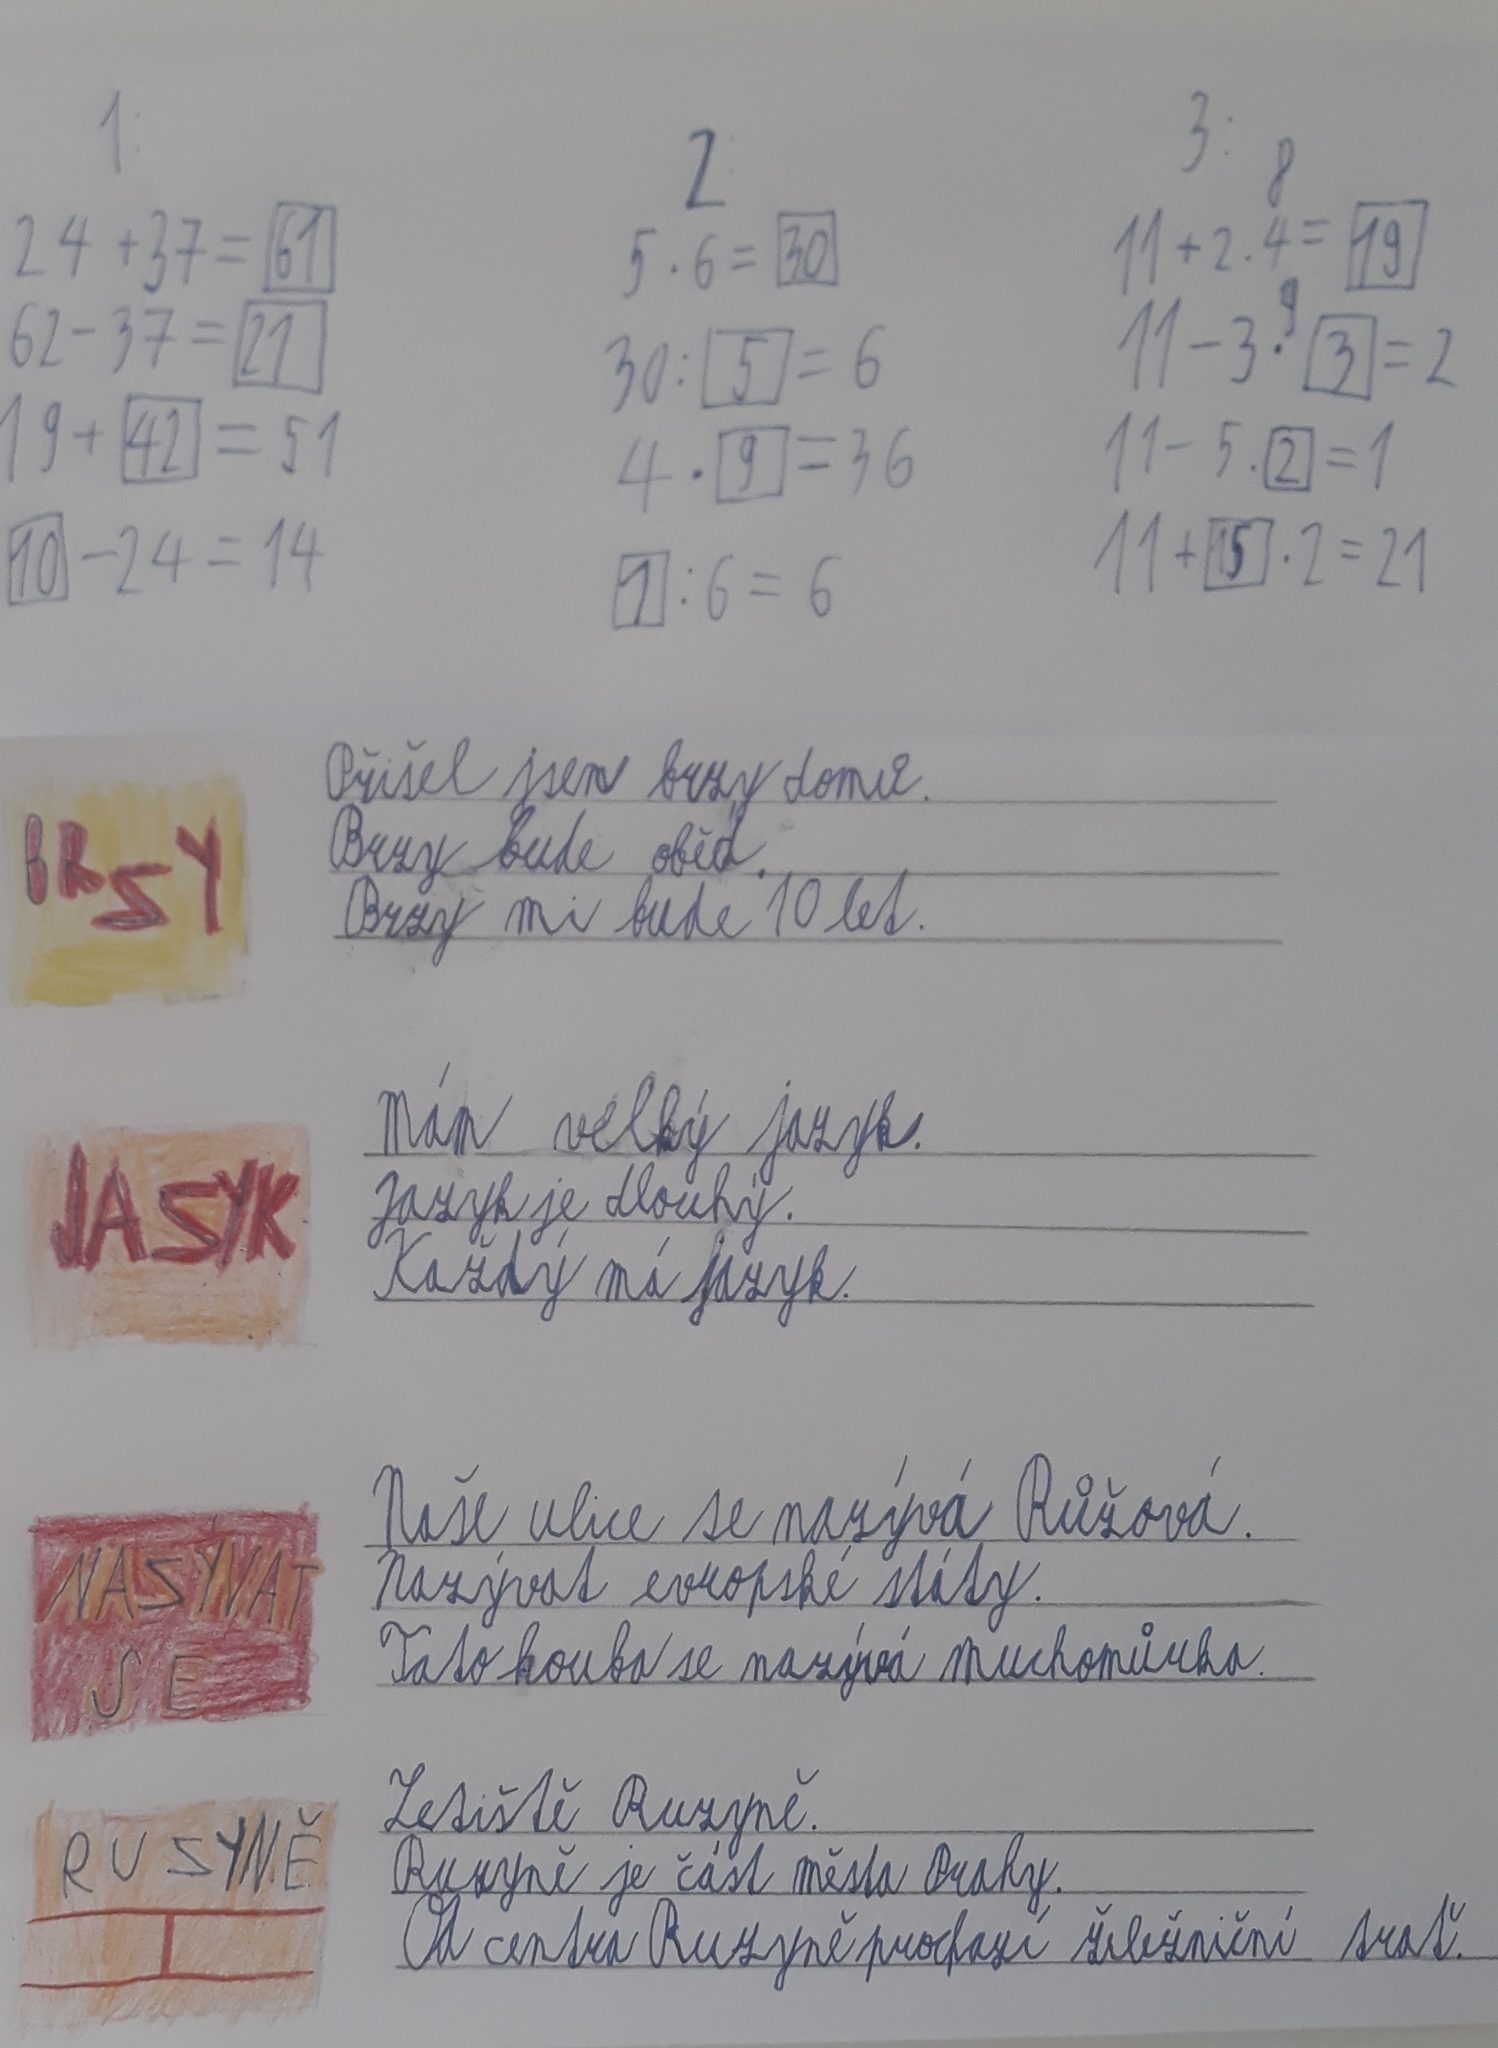 1:
24 + 37 = 61
62 - 37 = 21
19 + 42 = 51
10 - 24 = 14
2:
5 . 6 = 30
30 : 5 = 6
4 . 9 = 36
1 : 6 = 6
3:
8
11 + 2 . 4 = 19
9
11 - 3 . 3 = 2
11 - 5 . 2 = 1
11 + 15 . 2 = 21
BRZY
Přišel jsem brzy domů.
Brzy bude oběd.
Brzy mi bude 10 let.
JAZYK
Mám velký jazyk.
Jazyk je dlouhý.
Každý má jazyk.
NAZÝVAT
SE
Naše ulice se nazývá Růžová.
Nazývat evropské státy.
Tato houba se nazývá Muchomůrka.
RUZYNĚ
Letiště Ruzyně.
Ruzyně je část města Prahy.
Od centra Ruzyně prochazí želežniční trať.